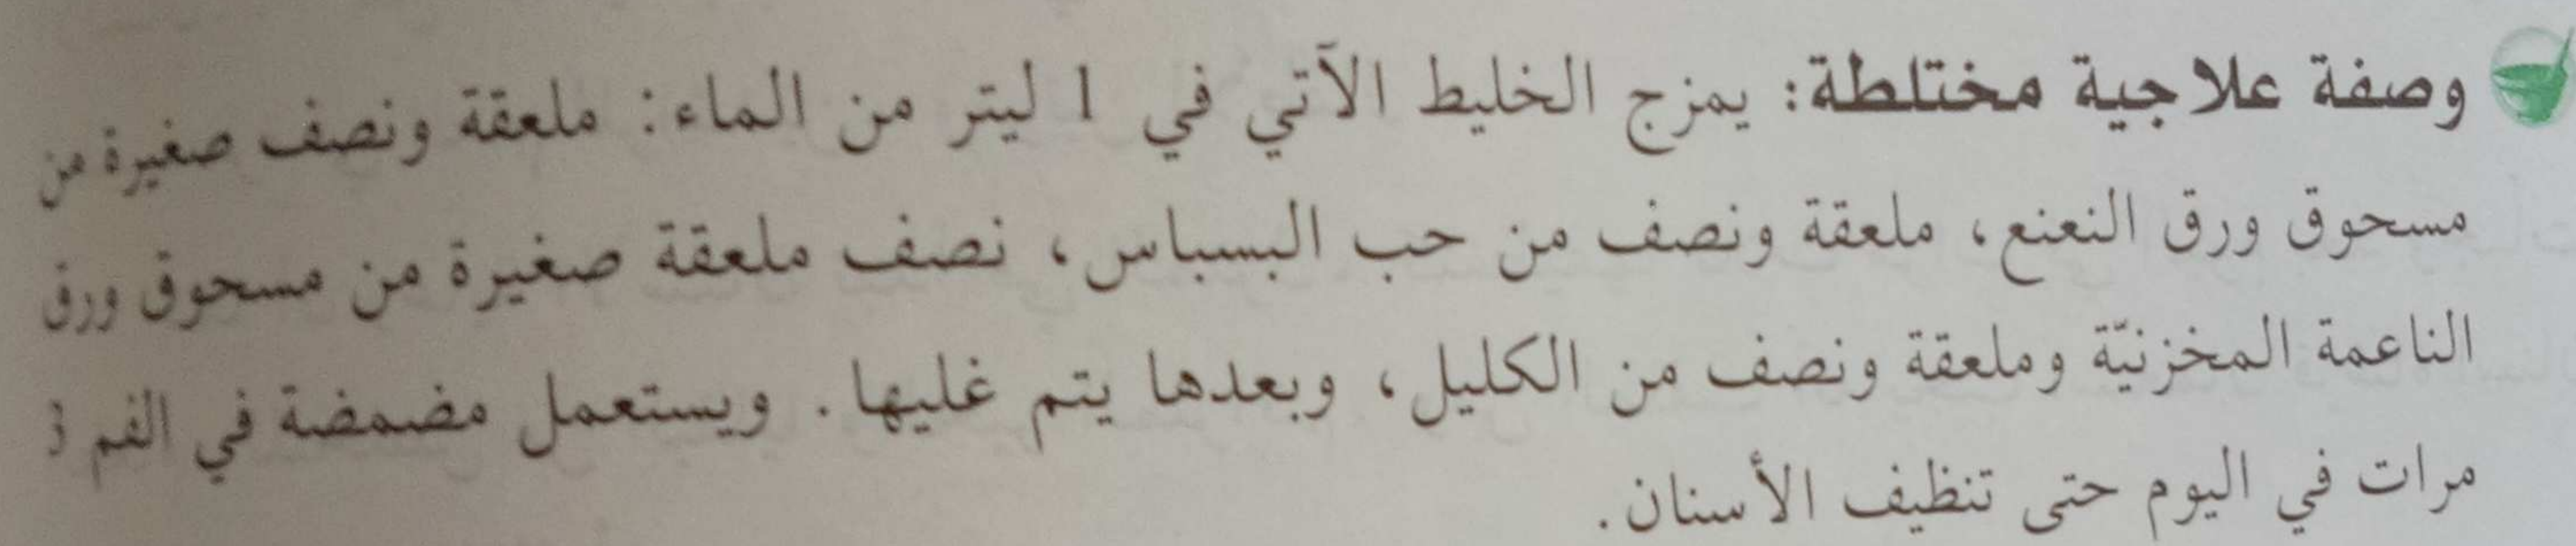 وصفة علاجية مختلطة: يمزج الخليط الآتي في 1 ليتر من الماء: ملعقة ونصف صغيرة من
مسحوق ورق النعنع، ملعقة ونصف من حب البسباس، نصف ملعقة صغيرة من مسحوق ورق
الناعمة المخزنيّة وملعقة ونصف من الكليل، وبعدها يتم غليها. ويستعمل مضمضة في الفم 3
مرات في اليوم حتى تنظيف الأسنان.